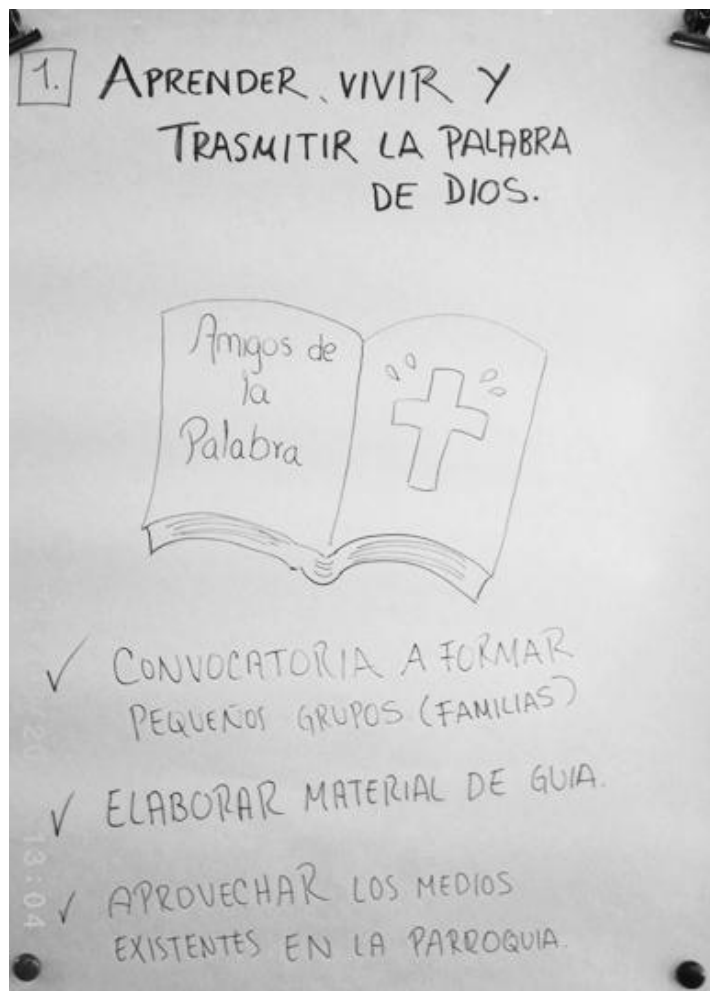 1. APRENDER, VIVIR Y
TRASMITIR LA PALABRA
DE DIOS.
Amigos de
la
Palabra
✓ CONVOCATORIA A FORMAR
PEQUEÑOS GRUPOS (FAMILIAS)
✓ ELABORAR MATERIAL DE GUIA.
✓ APROVECHAR LOS MEDIOS
EXISTENTES EN LA PARROQUIA.
13:04